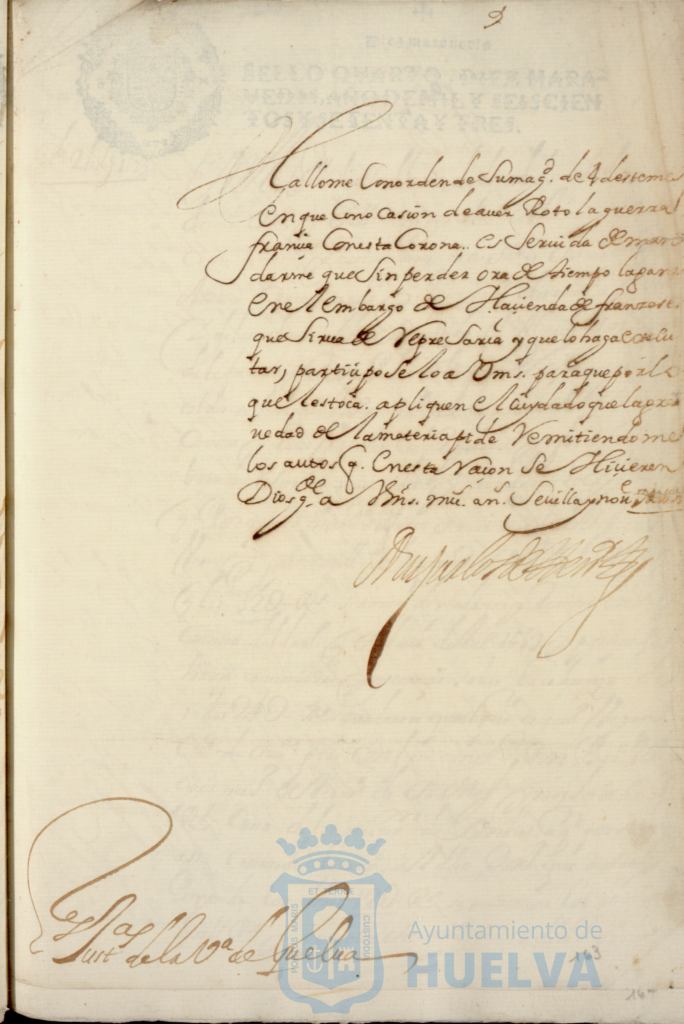 9
SELLO QUARTO, DIEZ MARA-
VEDIS, AÑO DE MIL Y SEISCIEN
TOS Y SETENTA Y TRES.
Hallome Con orden de Su mag.d de 4 deste mes
en que Con ocasion de aver Roto la guerra
françia Con esta Corona. es Servida de man
darme que Sin perder ora de tiempo
en el embargo de Haçienda de françeses
que Sirva de Represaria y que lo haga execu
tar, partiçiposelo a Vms. para que por lo
que les toca. apliquen el Cuydado que la gra
uedad de la materia pide Remitiendome
los autos q. en esta Raçon Se Hiçieren
Dios g.de a Vms. mu.s an.s Sevilla y nou.e
Just.a de la V.a de Guelua
ET TERRAE
PORTUS MARIS
CUSTODIA
Ayuntamiento de
HUELVA
163